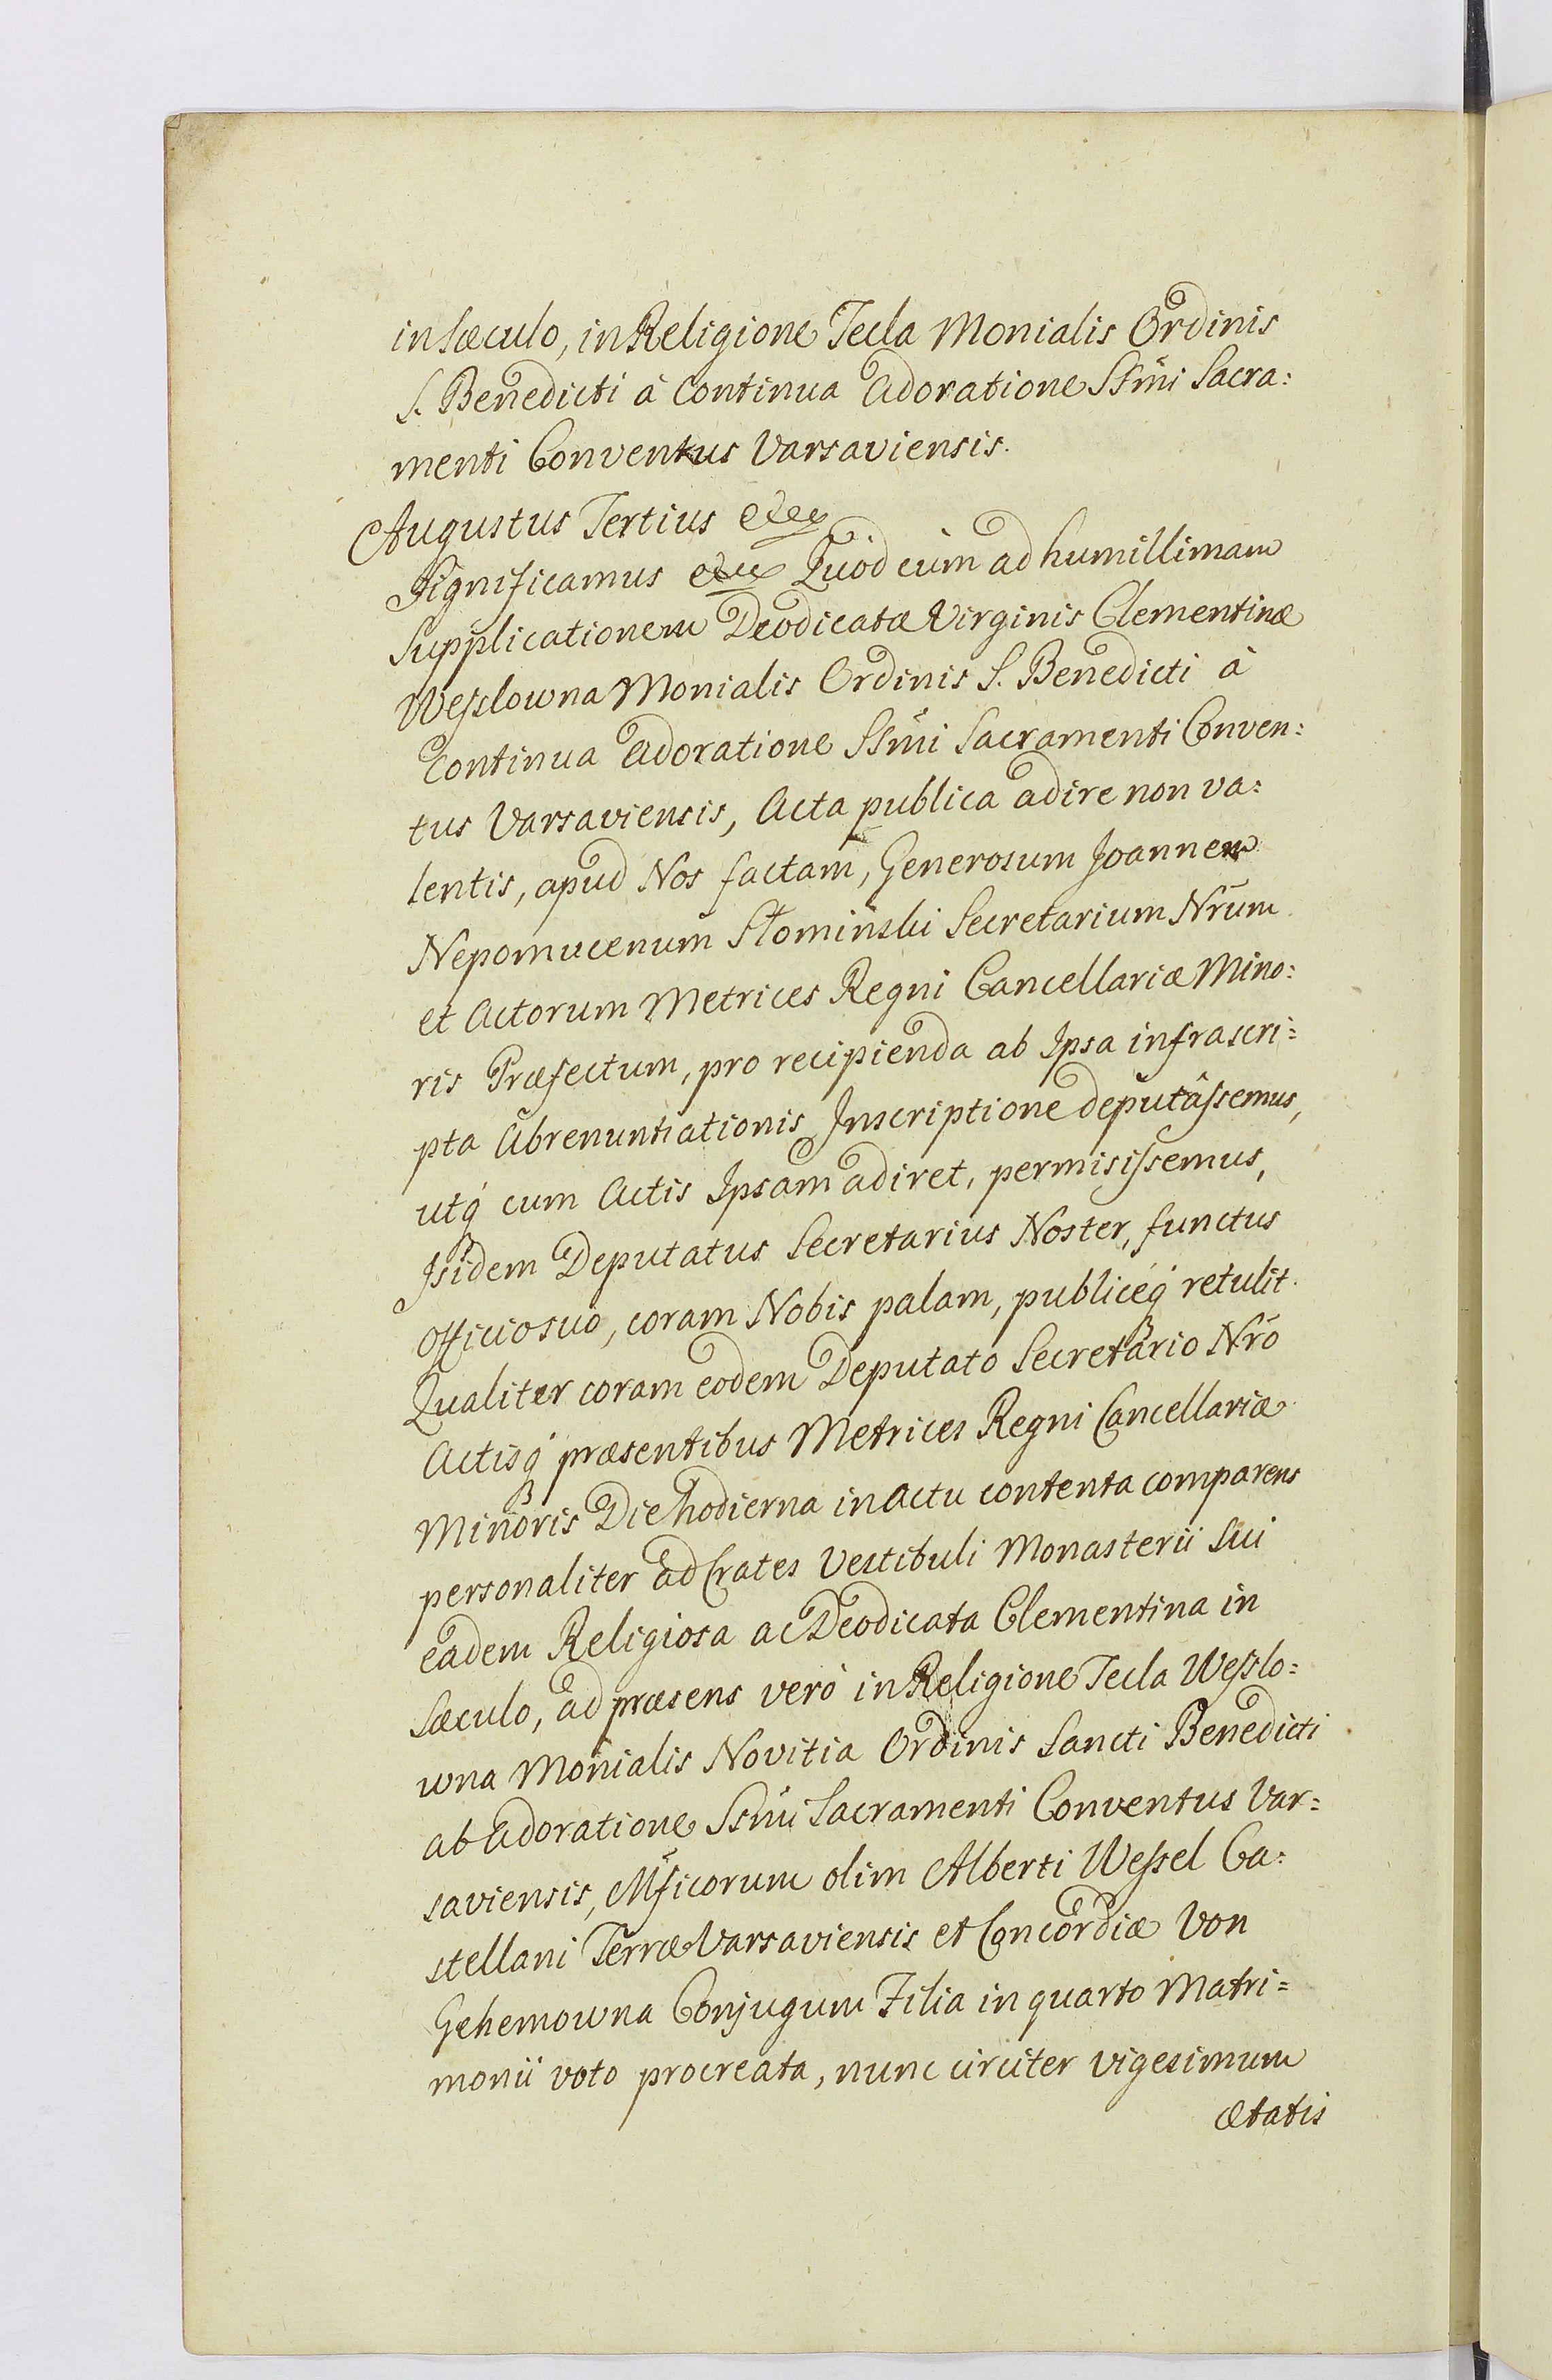 in Sæculo, in Religione Tecla Monialis Ordinis
S. Benedicti à Continua Adoratione SSmi Sacra:
menti Conventus Varsaviensis.
Augustus Tertius etc
Significamus etc Quod cùm ad humillimam
Supplicationem Deodicatæ Virginis Clementinæ
Wesslowna Monialis Ordinis S. Benedicti à
Continua Adoratione SSmi Sacramenti Conven:
tus Varsaviensis, Acta publica adire non va:
lentis, apud Nos factam, Generosum Joannem
Nepomucenum Słominski Secretarium Nrum
et Actorum Metrices Regni Cancellariæ Mino:
ris Præfectum, pro recipienda ab Ipsa infrascri:
pta Abrenuntiationis Inscriptione deputâssemus,
utq cum Actis Ipsam adiret, permisissemus,
Isidem Deputatus Secretarius Noster, functus
Officio suo, coram Nobis palam, publiceq́ retulit.
Qualiter coram eodem Deputato Secretario Nro
Actisq́ præsentibus Metrices Regni Cancellariæ
Minoris Die hodierna in actu contenta comparens
personaliter ad Crates Vestibuli Monasterii Sui
eadem Religiosa ac Deodicata Clementina in
Sæculo, ad præsens verò in Religione Tecla Wesslo:
wna Monialis Novitia Ordinis Sancti Benedicti
ab Adoratione SSmi Sacramenti Conventus Var:
saviensis, Mficorum olim Alberti Wessel Ca:
stellani Terræ Varsaviensis et Concordiæ Von
Gehemowna Conjugum Filia in quarto Matri:
monii voto procreata, nunc circiter vigesimum
ætatis